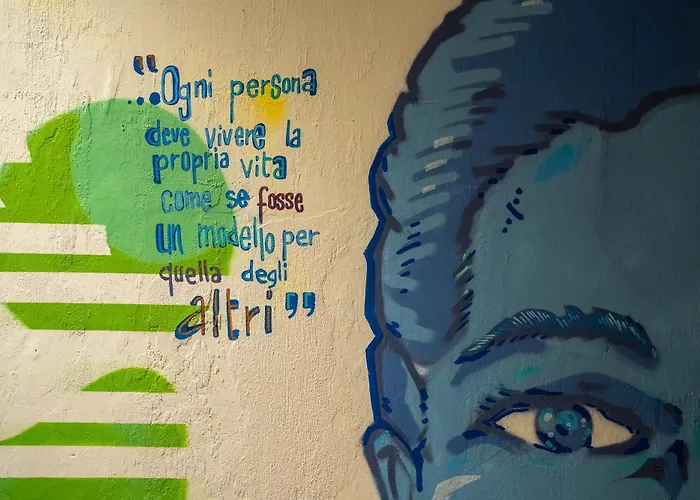 “...Ogni persona
deve vivere la
propria vita
come se fosse
un modello per
quella degli
altri”